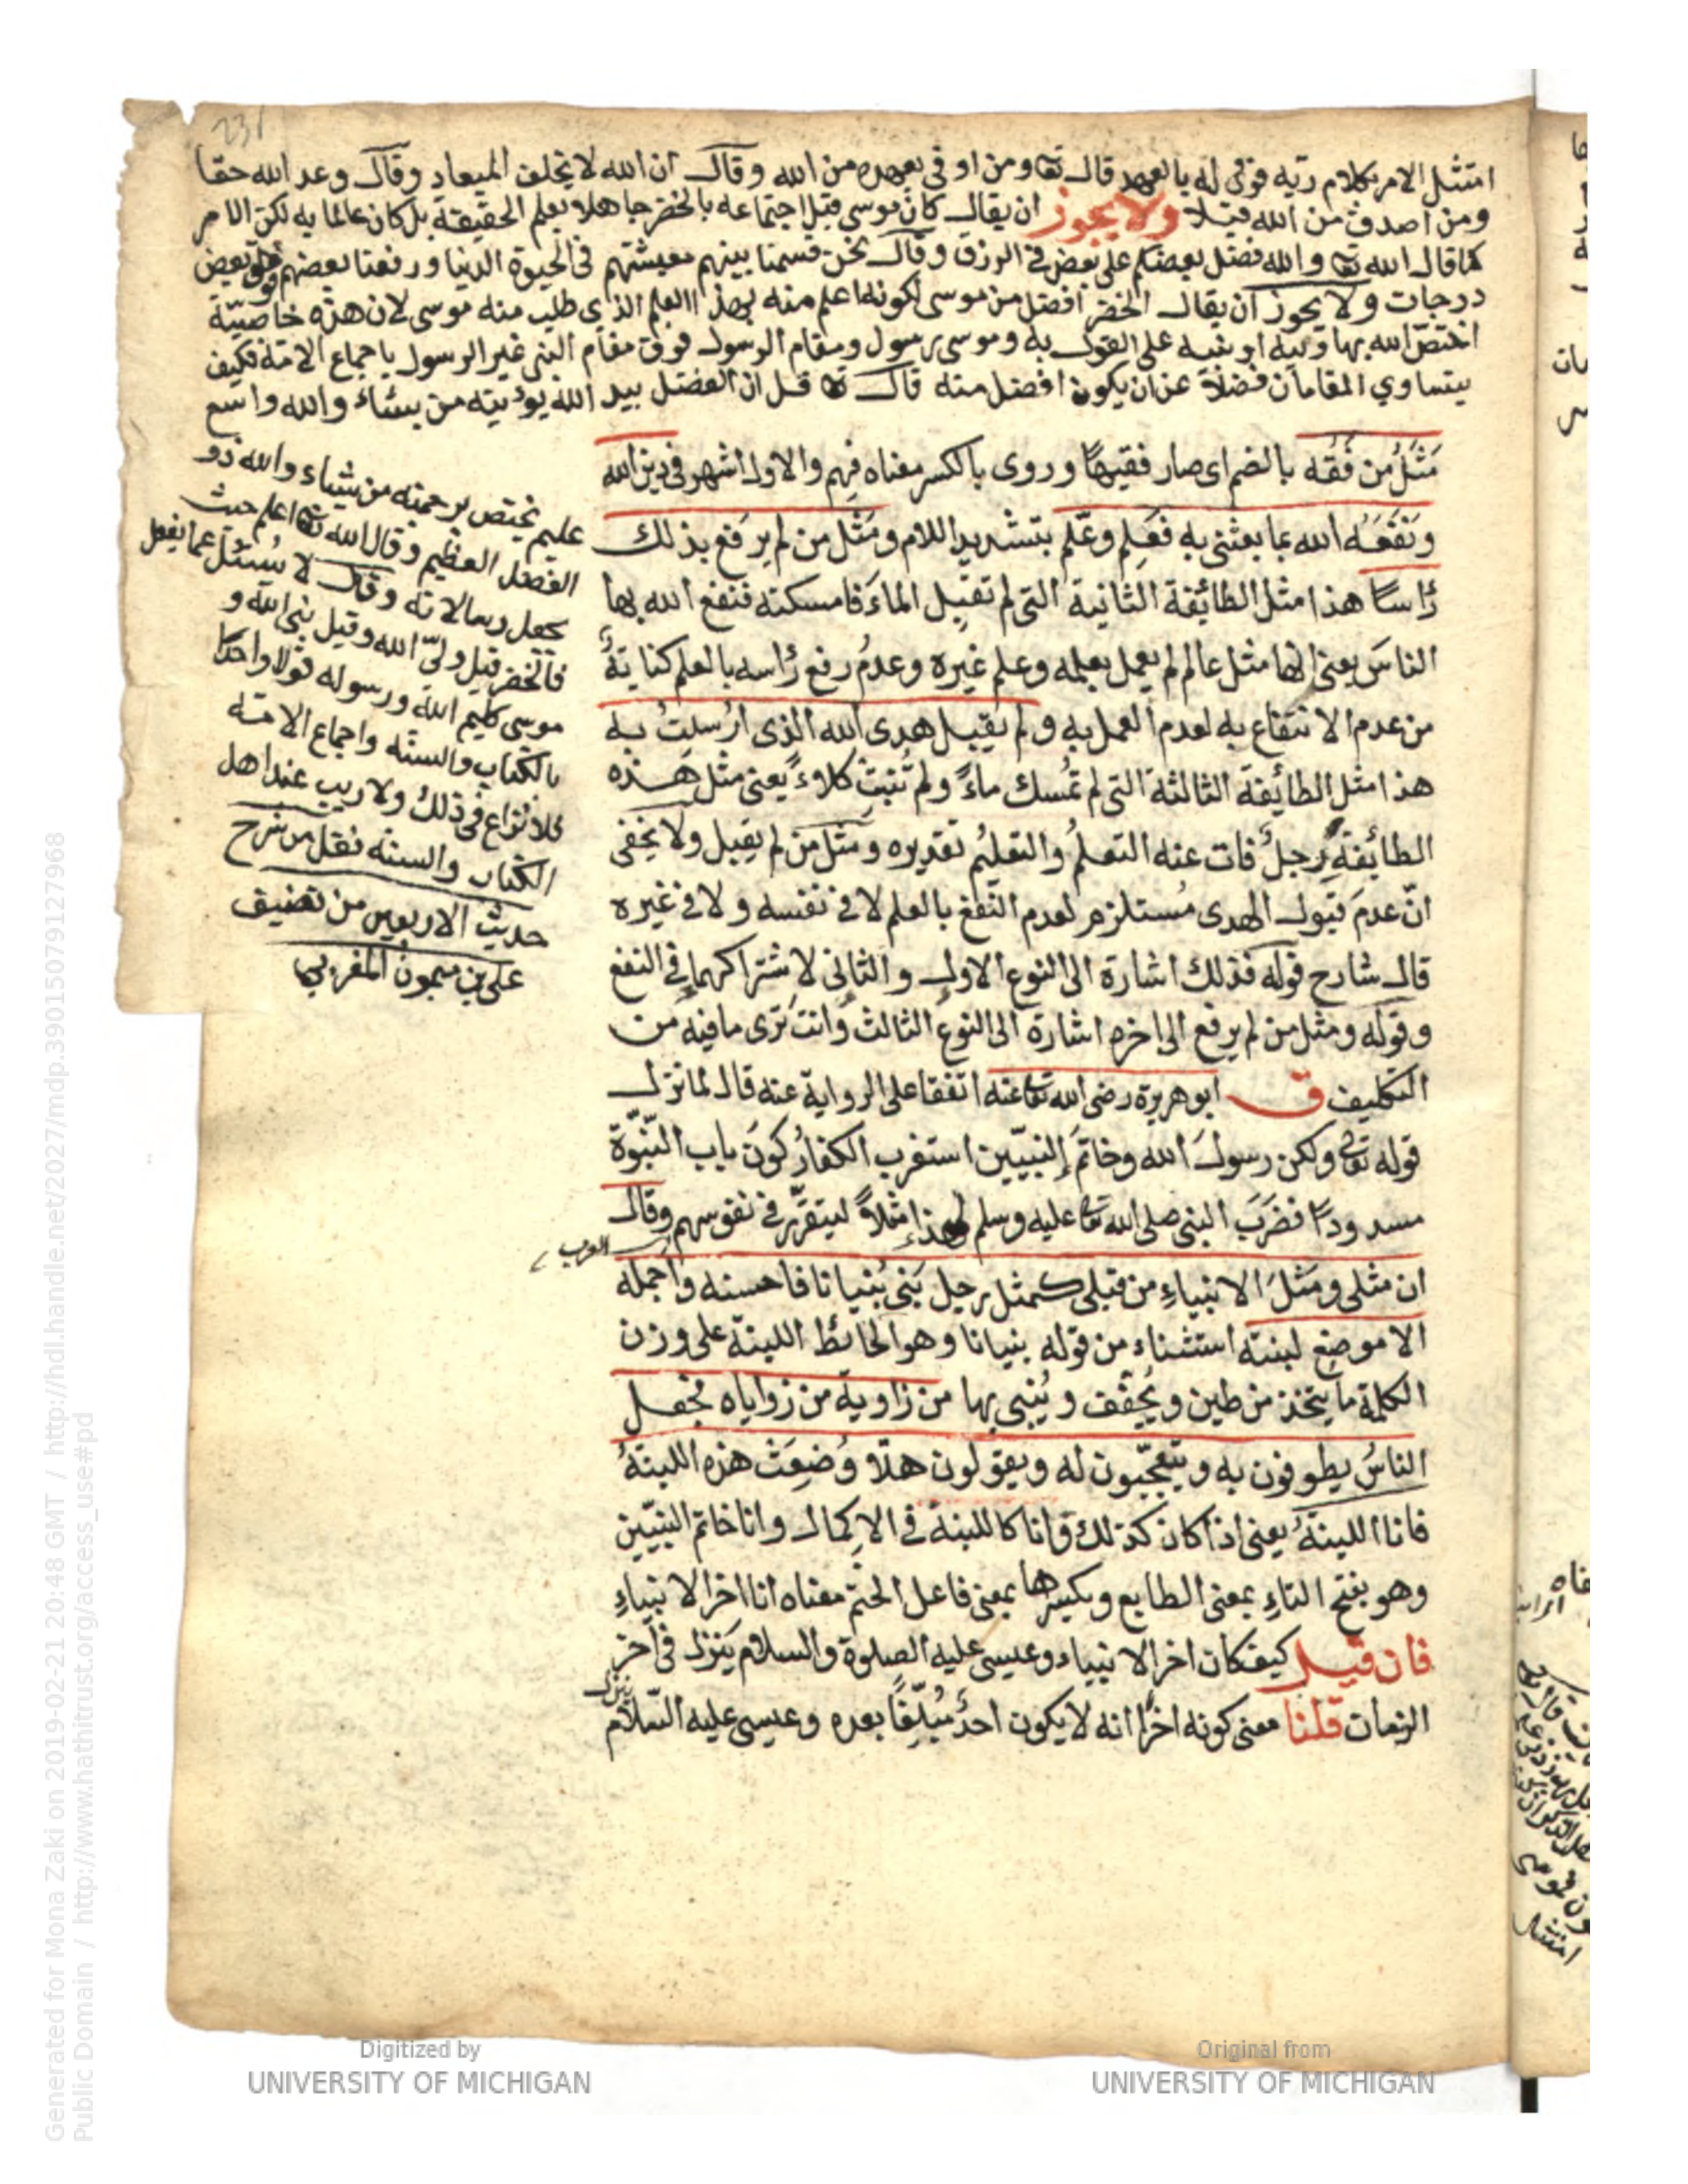 231
امتثل الامر بكلام ربه فوفى له بالعهد قال تعا ومن اوفى بعهده من الله وقال ان الله لا يخلف الميعاد وقال وعد الله حقا
ومن اصدق من الله قيلا ولا يجوز ان يقال كان موسى قبل اجتماعه بالخضر جاهلا بعلم الحقيقة بل كان عالما به لكن الامر
كما قال الله تعا والله فضل بعضكم على بعض في الرزق وقال نحن قسمنا بينهم معيشتهم في الحيوة الدنيا ورفعنا بعضهم فوق بعض
درجات ولا يجوز ان يقال الخضر افضل من موسى لكونه اعلم منه بهذا العلم الذي طلب منه موسى لان هذه خاصيّة
اختصّ الله بها وليه او نبيه على القول به وموسى رسول ومقام الرسول فوق مقام النبي غير الرسول باجماع الامة فكيف
يتساوي المقامان فضلا عن ان يكون افضل منه قال تعا قل ان الفضل بيد الله يؤتيه من يشاء والله واسع
عليم يختص برحمته من يشاء والله ذو
الفضل العظيم وقال الله تعا اعلم حيث
يجعل رسالاته وقال لا يُسئل عما يفعل
فالخضر قيل وليّ الله وقيل نبي الله و
موسى كليم الله ورسوله قولا واحدًا
بالكتاب والسنة واجماع الامة
فلا نزاع في ذلك ولا ريب عند اهل
الكتاب والسنة نقل من شرح
حديث الاربعين من تصنيف
على بن ميمون المغربي
مَثَلُ من فَقُه بالضم اى صار فقيهًا وروى بالكسر معناه فهم والاول اشهر في دين الله
ونَفَعَه الله بما بعثنى به فعَلِم وعَلّم بتشديد اللام ومَثَل من لم يرفع بذلك
رأسًا هذا مثل الطائفة الثانية التى لم تقبل الماءَ فامسكته فنفع الله بها
الناسَ يعنى انها مثل عالم لم يعمل بعلمه وعلم غيره وعدمُ رفع رأسه بالعلم كناية
من عدم الانتفاع به لعدم العمل به ولم يقبل هدى الله الذى ارُسلتُ به
هذا مثل الطائفة الثالثة التى لم تمُسك ماءً ولم تُنبت كلاءً يعنى مثل هذه
الطائفة رجلٌ فات عنه التعلمُ والتعليمُ تقديره ومثل من لم يقبل ولا يخفى
انّ عدمَ قبول الهدى مُستلزم لعدم النفع بالعلم لا في نفسه ولا في غيره
قال شارح قوله فذلك اشارة الى النوع الاول والثانى لاشتراكهما في النفع
وقوله ومثل من لم يرفع الى اخره اشارة الى النوع الثالث وانت ترى ما فيه من
التكليف ق ابو هريرة رضى الله تعا عنه اتفقا على الرواية عنه قال لما نزل
قوله تعا ولكن رسولَ الله وخاتمَ النبيّين استغرب الكفارُ كونَ باب النبوّة
مسدودًا فضَرَبَ النبى صلى الله تعا عليه وسلم لهذا مثلاً ليتقرّر في نفوسهم وقال
العرب
ان مثلى ومَثَلَ الانبياءِ من قبلى كمثل رجل بَنى بُنيانا فاحسنه واجمله
الا موضع لبنة استثناء من قوله بنيانا وهو الحائط اللبنة على وزن
الكلمة ما يتخذ من طين ويُجفّف ويُبنى بها من زاوية من زواياه فجعل
الناسُ يطوفون به ويتعجّبون له ويقولون هلّا وُضعَت هذه اللبنةُ
فانا اللبنةُ يعنى اذا كان كذلك فانا كاللبنة في الاِكمال وانا خاتم النبيّين
وهو بفتح التاءِ بمعنى الطابع وبكسرها بمعنى فاعل الختم معناه انا اخر الانبياءِ
فان قيل كيف كان اخر الانبياء وعيسى عليه الصلوة والسلام يَنزل في آخر
الزمان قلنا معنى كونه اخرًا انه لا يكون احدٌ مُبلّغًا بعده وعيسى عليه السّلام
ينزل